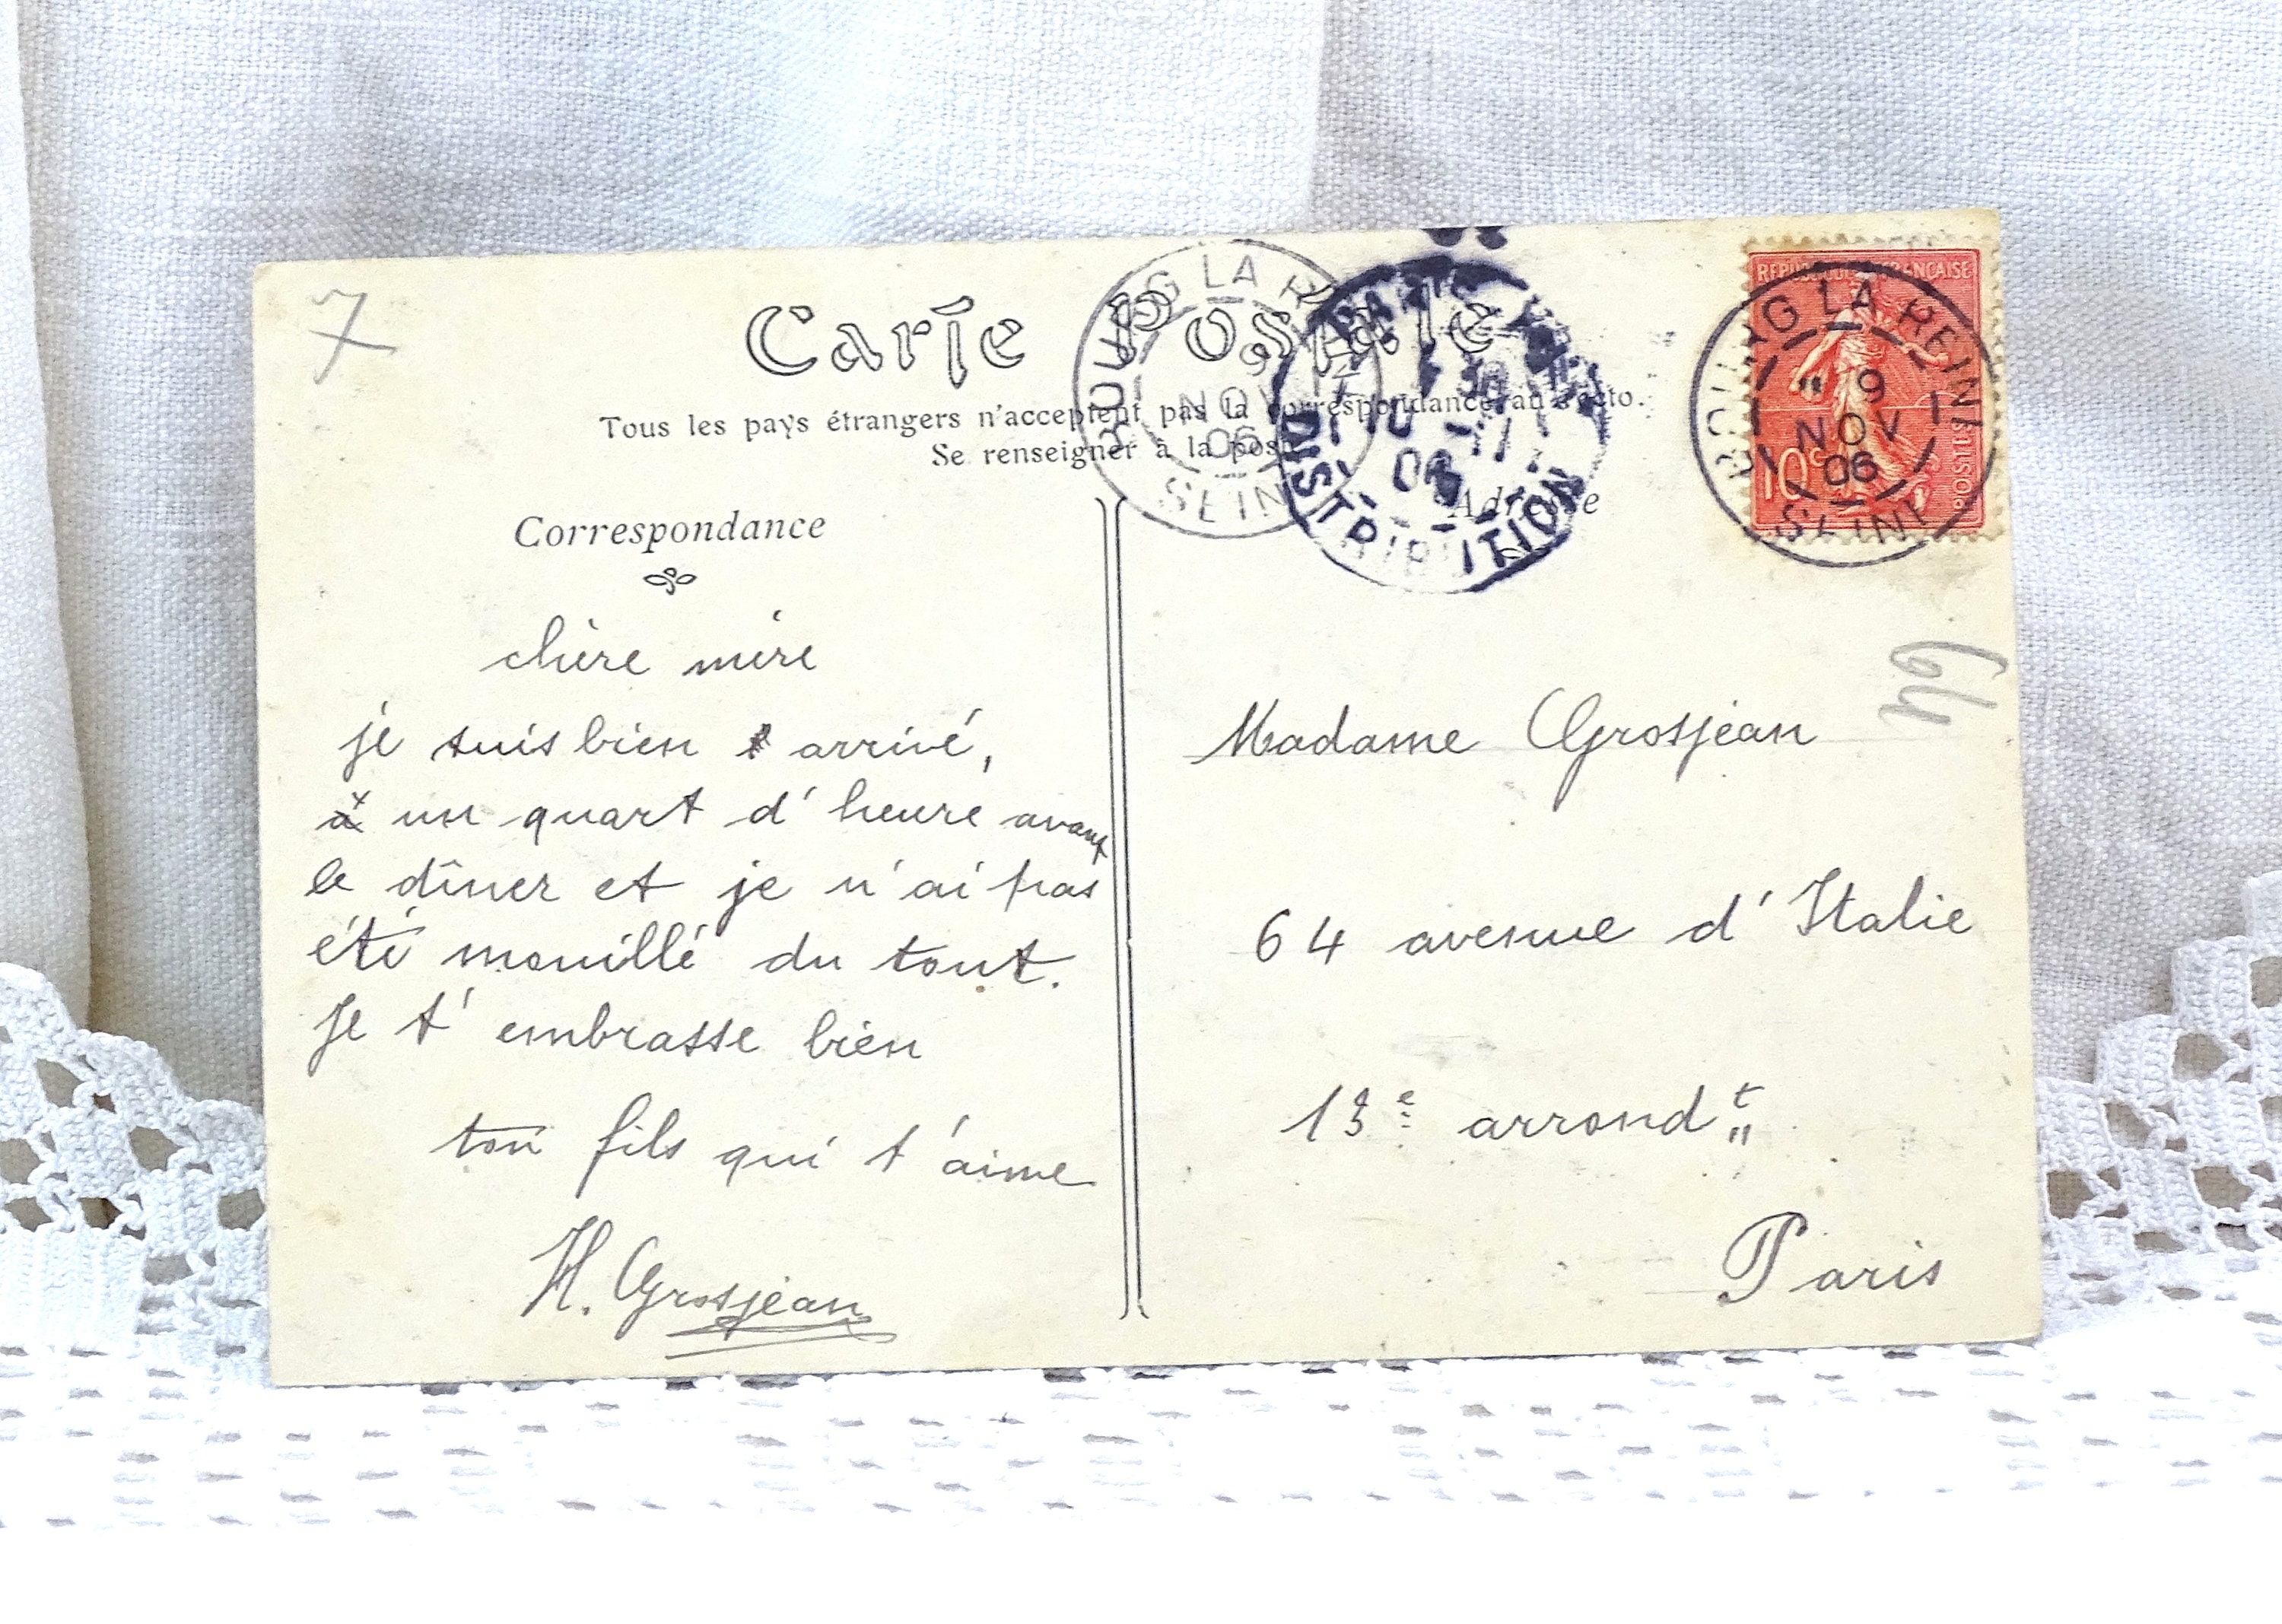 7
Carte Postale
Tous les pays étrangers n'acceptent pas la correspondance au recto.
Se renseigner à la poste
Correspondance
Adresse
BOURG LA REINE
9
NOV
06
SEINE
PARIS
06
DISTRIBUTION
REPUBLIQUE FRANÇAISE
10c
POSTES
BOURG LA REINE
9
NOV
06
SEINE
chère mère
je suis bien arrivé,
à un quart d'heure avant
le dîner et je n'ai pas
été mouillé du tout.
Je t'embrasse bien
ton fils qui t'aime
H. Grosjean
64
Madame Grosjean
64 avenue d'Italie
13e arrondt
Paris